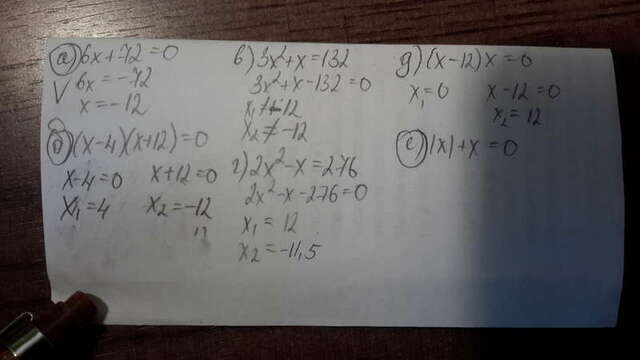 а) 6x+72=0
V 6x=-72
x=-12
б) (x-4)(x+12)=0
x-4=0 x+12=0
x₁=4 x₂=-12
в) 3x²+x=132
3x²+x-132=0
x₁≠12
x₂≠-12
г) 2x²-x=276
2x²-x-276=0
x₁=12
x₂=-11,5
д) (x-12)x=0
x₁=0 x-12=0
x₂=12
е) |x|+x=0